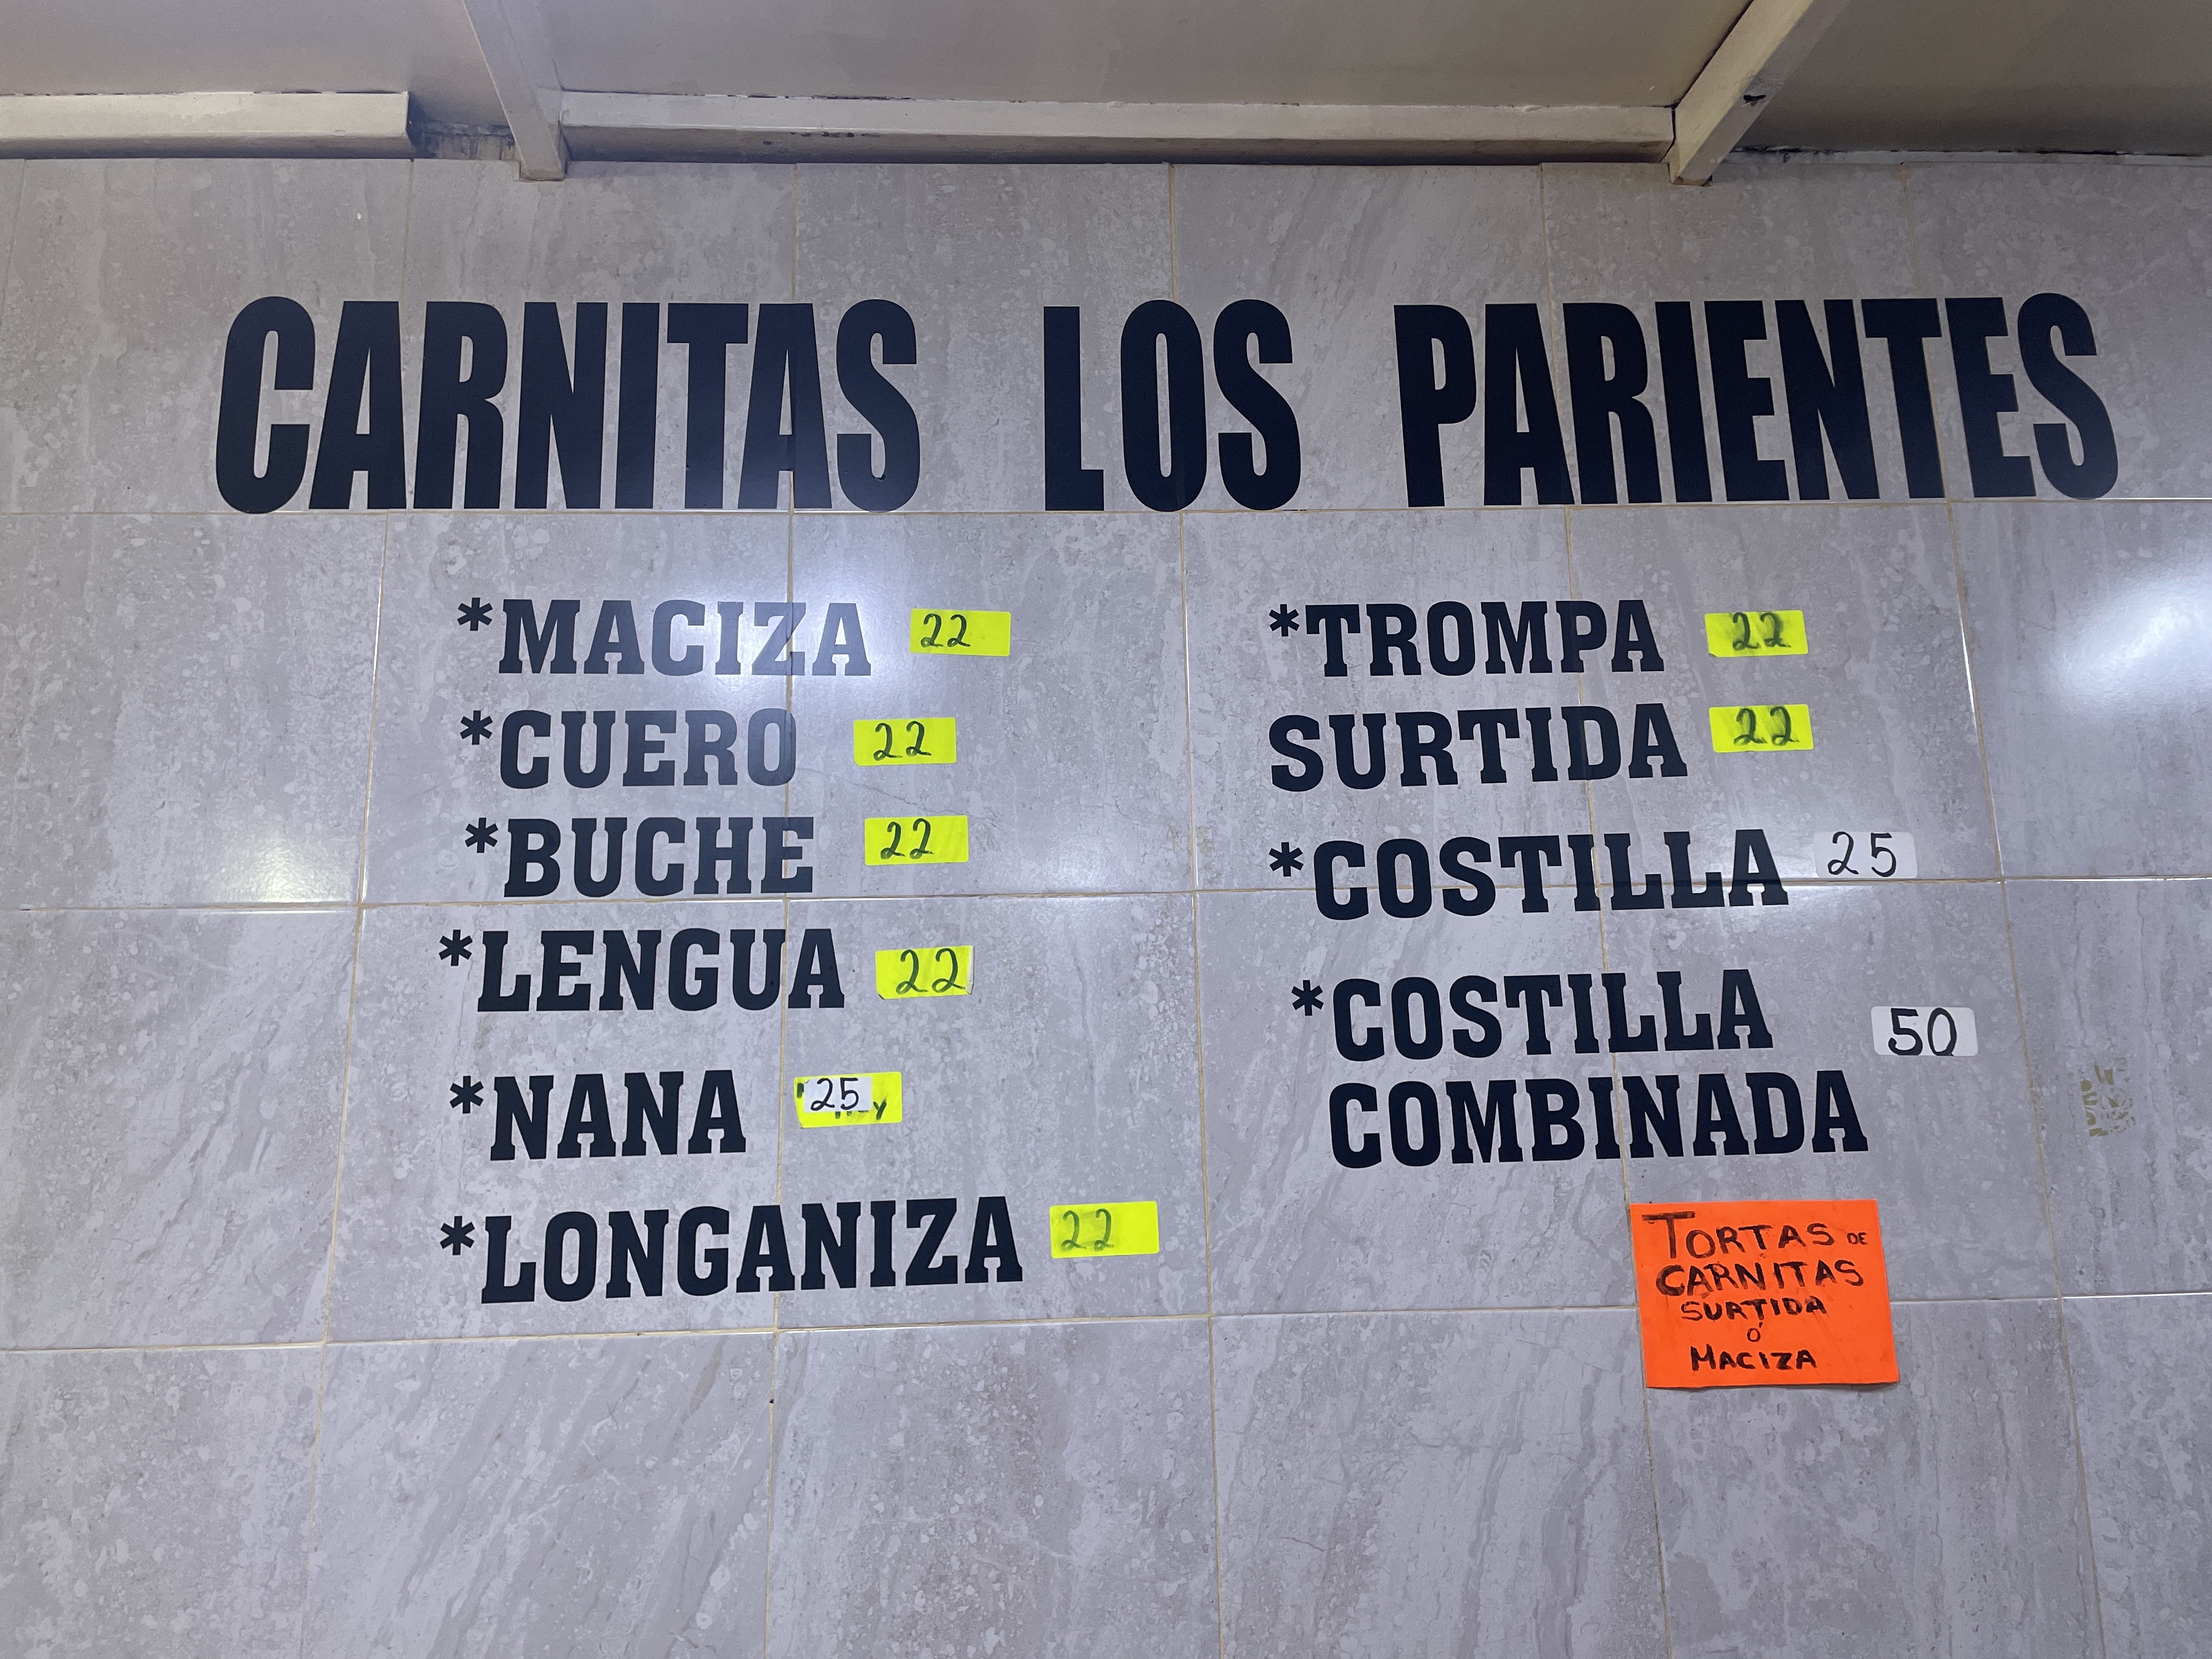 CARNITAS LOS PARIENTES
*MACIZA 22
*CUERO 22
*BUCHE 22
*LENGUA 22
*NANA 25
*LONGANIZA 22
*TROMPA 22
SURTIDA 22
*COSTILLA 25
*COSTILLA 50
COMBINADA
TORTAS DE
CARNITAS
SURTIDA
Ó
MACIZA